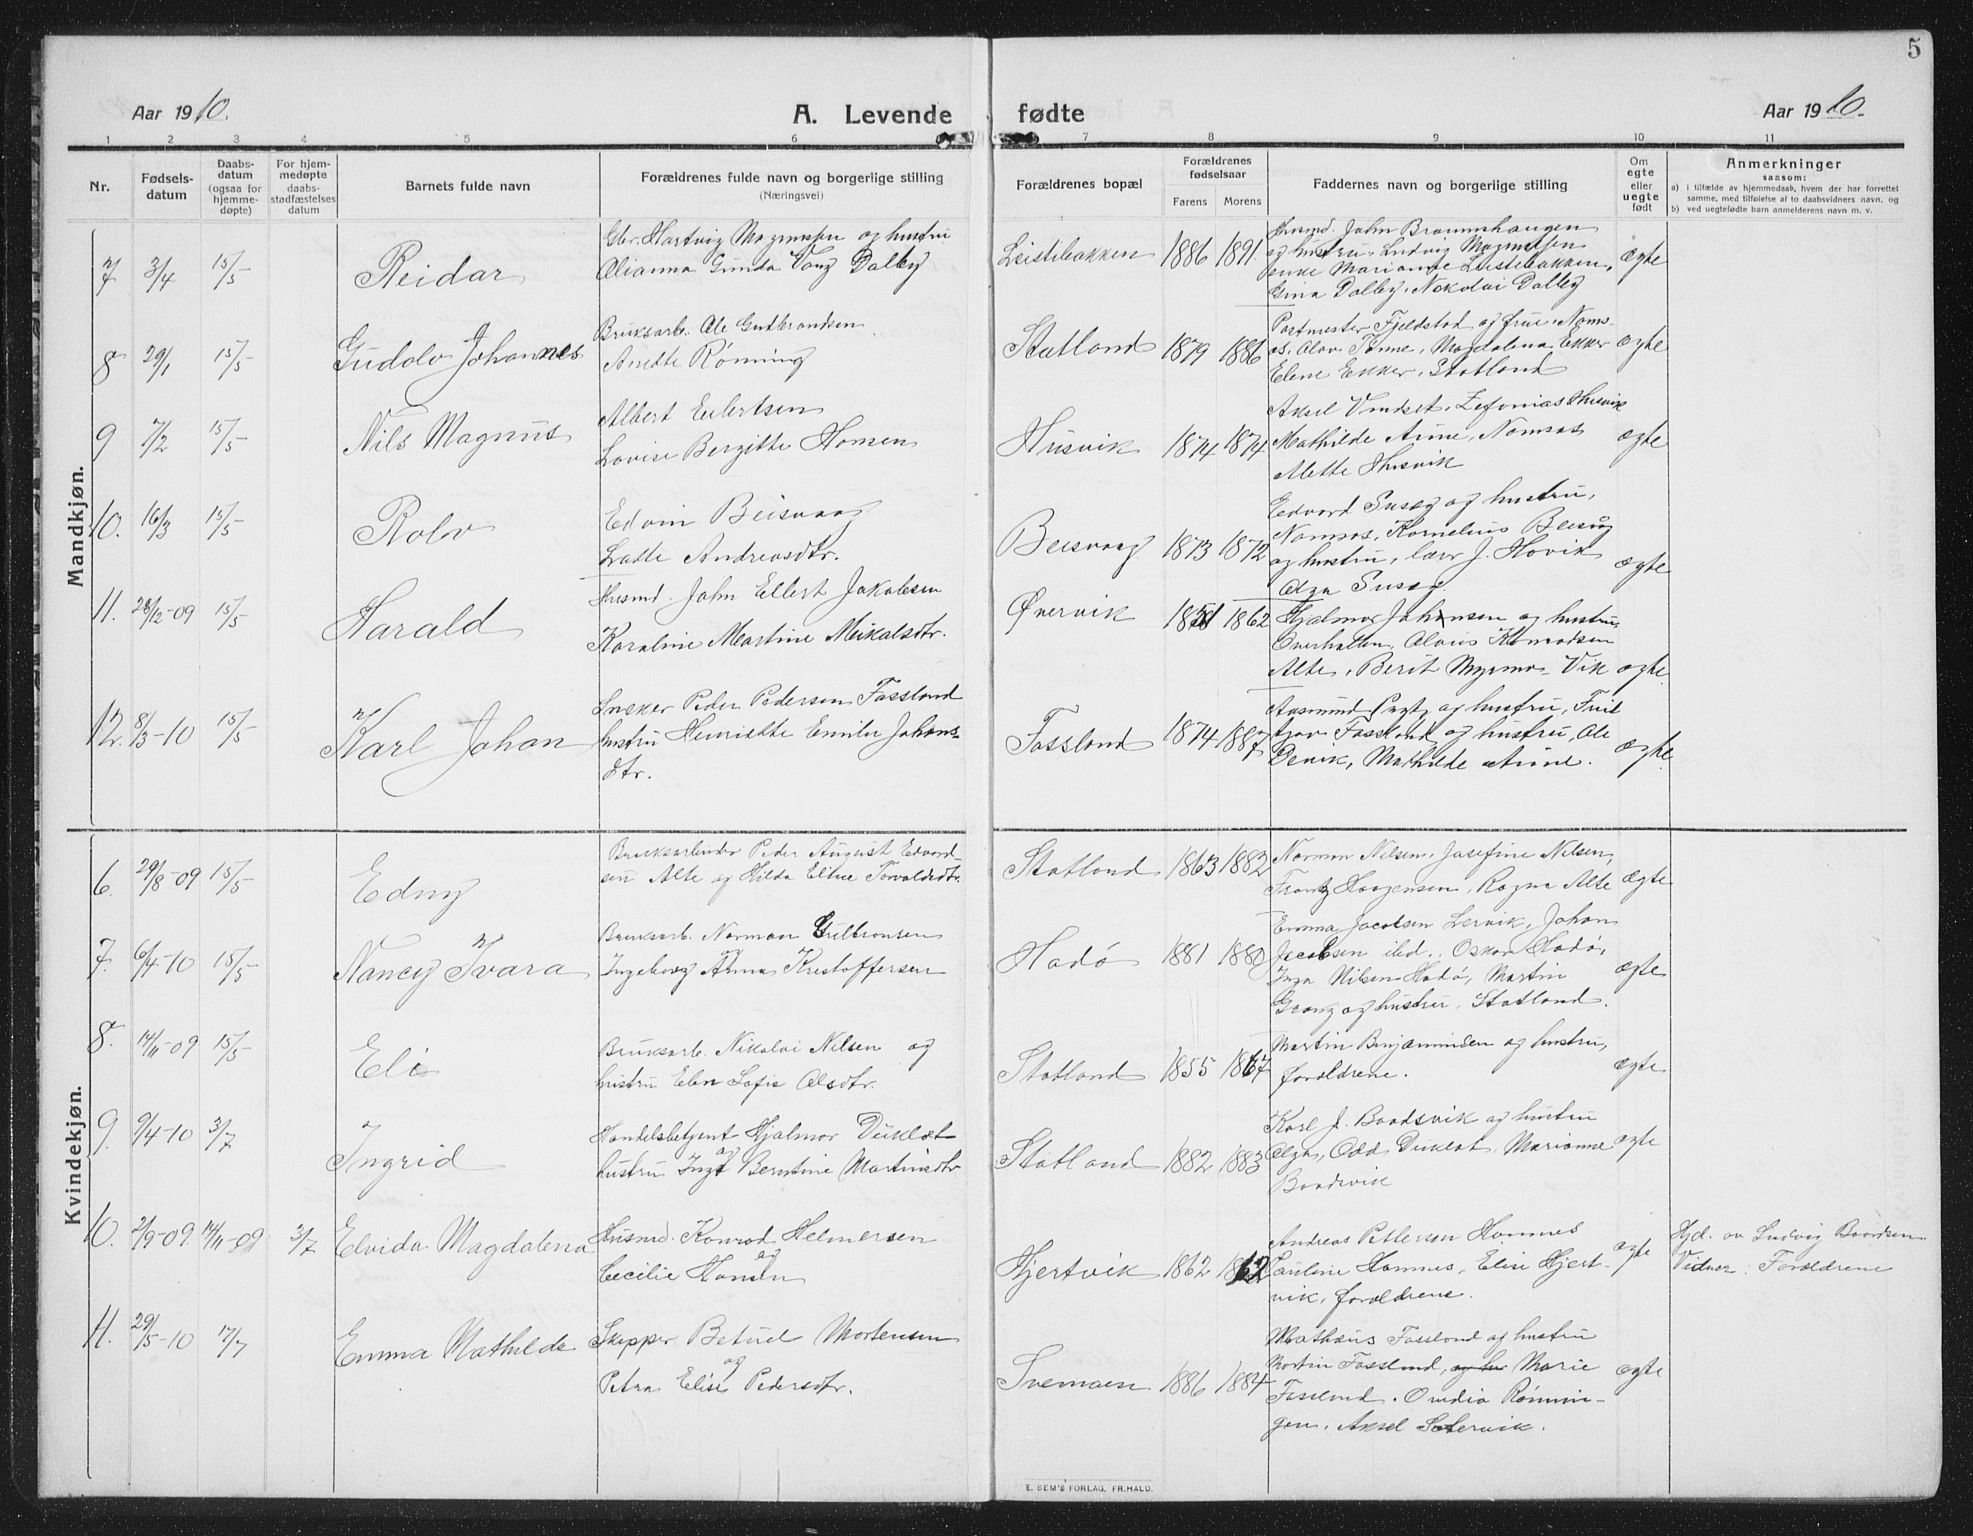 5
Aar 1910.
A. Levende fødte
Aar 1910.
1 2 3 4 5 6 7 8 9 10 11
Nr.
Fødsels-
datum
Daabs-
datum
(ogsaa for
hjemme-
døpte)
For hjem-
medøpte
daabs-
stadfæstelses
datum
Barnets fulde navn
Forældrenes fulde navn og borgerlige stilling
(Næringsvei)
Forældrenes bopæl
Forældrenes
fødselsaar
Farens Morens
Faddernes navn og borgerlige stilling
Om
egte
eller
uegte
født
Anmerkninger
saasom:
a) i tilfælde av hjemmedaab, hvem der har forrettet
samme, med tilføielse af to daabsvidners navn, og
b) ved uegtefødte barn anmelderens navn m. v.
Mandkjøn.
7 3/4 15/5 Reidar
Gbr. Hartvig Magnussen og hustru
Olianna Gunda Dalby
Leistebakken 1886 1891.
Husmd. John
og hustru, Ludvig Magnussen
enke Marianne Leistebakken,
Gina Dalby, Nikolai Dalby
egte
8 29/1 15/5 Gudolv Johannes
Bruksarb. Ole Gudbrandsen
Anette Rønning
Statland 1879 1886
Postmester Fjeldstad og frue, Nams-
os, Olav Tønne, Magdalena Ekker
Eline Ekker, Statland
egte
9 7/2 15/5 Nils Magnus
Albert Eilertsen
Lovise Bergitte Hansen
Husvik 1874 1874
Aksel Vindset, Zefanias Husvik
Mathilde Arine, Namsos
Mette Husvik
egte
10. 16/3 15/5 Rolv
Edvin Beisvaag
Andreasdtr.
Beisvaag 1873 1872
Edvard Susæg og hustru,
Namsos, Kornelius
og hustru, lærr J. Hovik
Olga Susæg
egte
11. 28/12-09 15/5 Harald
Husmd. John Ellert Jakobsen
Karaline Martine Mikalsdtr.
Øvervik 1862
Hjalmar Johansen og hustru,
Overhallen,
Alte, Berit Myrmo Vik
egte
12. 8/3-10 15/5 Karl Johan
Snekker Peder Pedersen Fossland
hustru Henriette Emilie Johans-
dtr.
Fossland 1874 1887
Aasmund og hustru,
Fossland og hustru, Ole
Devik, Mathilde Arine.
egte
Kvindekjøn.
6. 29/8-09 15/5 Edny
Bruksarbeider Peder August Edvard-
sen Alte og Hilda Eline Torvaldsdtr.
Statland 1863 1882
Norman Nilsen, Josefine Nilsen,
Frantz Haagensen, Ragna Alte
egte
7. 6/4-10 15/5 Nancy Ivara
Bruksarb. Norman Gulbransen
Ingeborg Anna Kristoffersen
Hadø 1881 1880
Emma Jacobsen Lervik, Johan
Jacobsen ibd., Oskar Hadø,
Inga Nilsen Hadø, Martin
Grong og hustru, Statland.
egte
8. 14/11-09 15/5 Eli
Bruksarb. Nikolai Nilsen og
hustru Elen Sofie Olsdtr.
Statland 1855 1867
Martin Benjaminsen og hustru,
forældrene.
egte
9. 9/4-10 3/7 Ingrid
Handelsbetjent Hjalmar Duklæt
og
hustru Inga Berntine Martinsdtr
Statland 1882 1883
Karl J. Baadsvik og hustru
Olga, Odd Duklæt, Marianne
Baadsvik
egte
10. 2/9-09. 14/11-09 3/7 Elvida Magdalena
Husmd. Konrad Helmersen
og
Cecilie Hansen
Hjertvik 1862 1862
Andreas Petterson Homnes
Pauline Homnes, Elise Hjert-
vik, forældrene.
egte
Hjd. av Ludvig Baardsen
Vidner: Forældrene
11. 29/5-10 17/7 Emma Mathilde
Skipper Betuel Mortensen
og
Petra Elise Pedersdtr.
Svemoen 1886 1884
Mathæus Fossland og hustru
Martin Fossland, Marie
Fossland. Ovedia Rønnin-
gen, Aksel
egte
E. SEM'S FORLAG, FR.HALD.